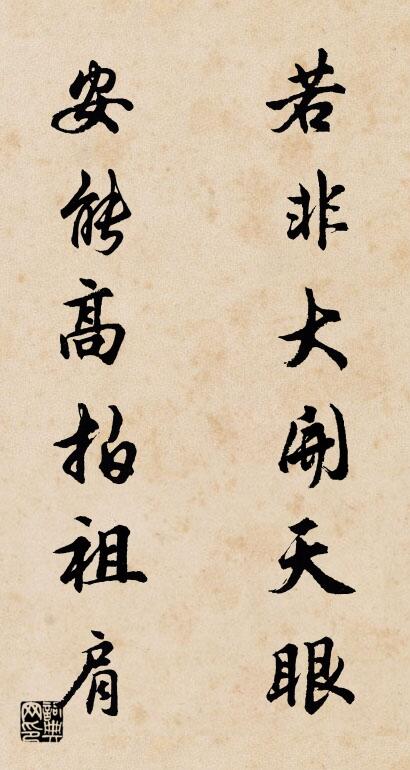 若非大開天眼
安能高拍祖肩